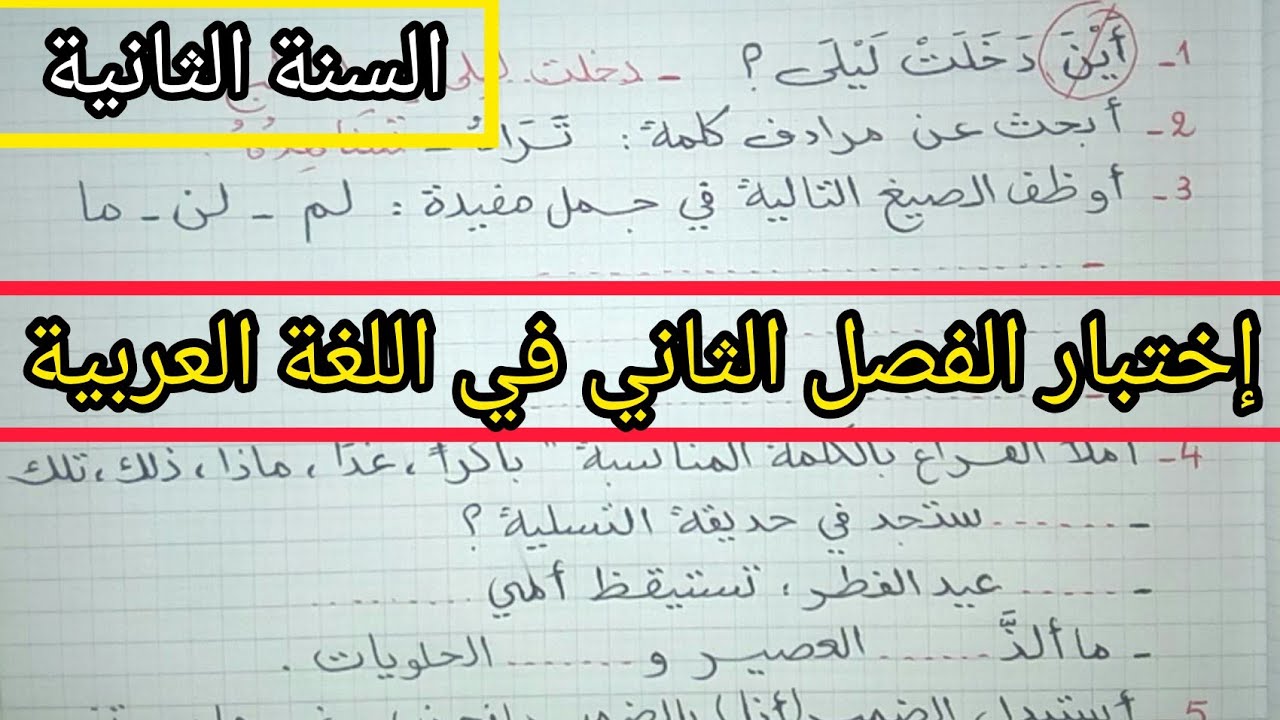 السنة الثانية
1- أَيْنَ دَخَلَتْ لَيْلَى ؟ - دخلت
2- أبحث عن مرادف كلمة :
3- أوظف الصيغ التالية في جمل مفيدة : لم - لن - ما
- ..................
إختبار الفصل الثاني في اللغة العربية
4- أملأ الفراغ بالكلمة المناسبة " باكراً ، غدًا ، ماذا ، ذلك ، تلك
- ....... ستجد في حديقة التسلية ؟
- ....... عيد الفطر ، تستيقظ أمي .........
- ما ألذَّ ....... العصير و ....... الحلويات .
5- أستبدل الضمير (أنا) بالضمير